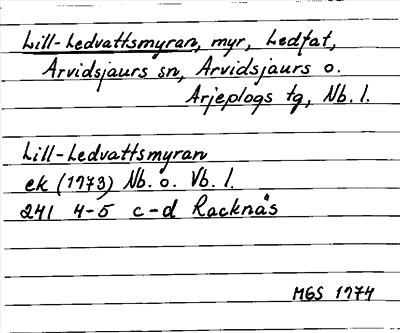 Lill-Ledvattsmyran, myr, Ledfat,
Arvidsjaurs sn, Arvidsjaurs o.
Arjeplogs tg, Nb. l.
Lill-Ledvattsmyran
ek (1973) Nb. o. Vb. l.
241 4-5 c-d Racknäs
MGS 1974